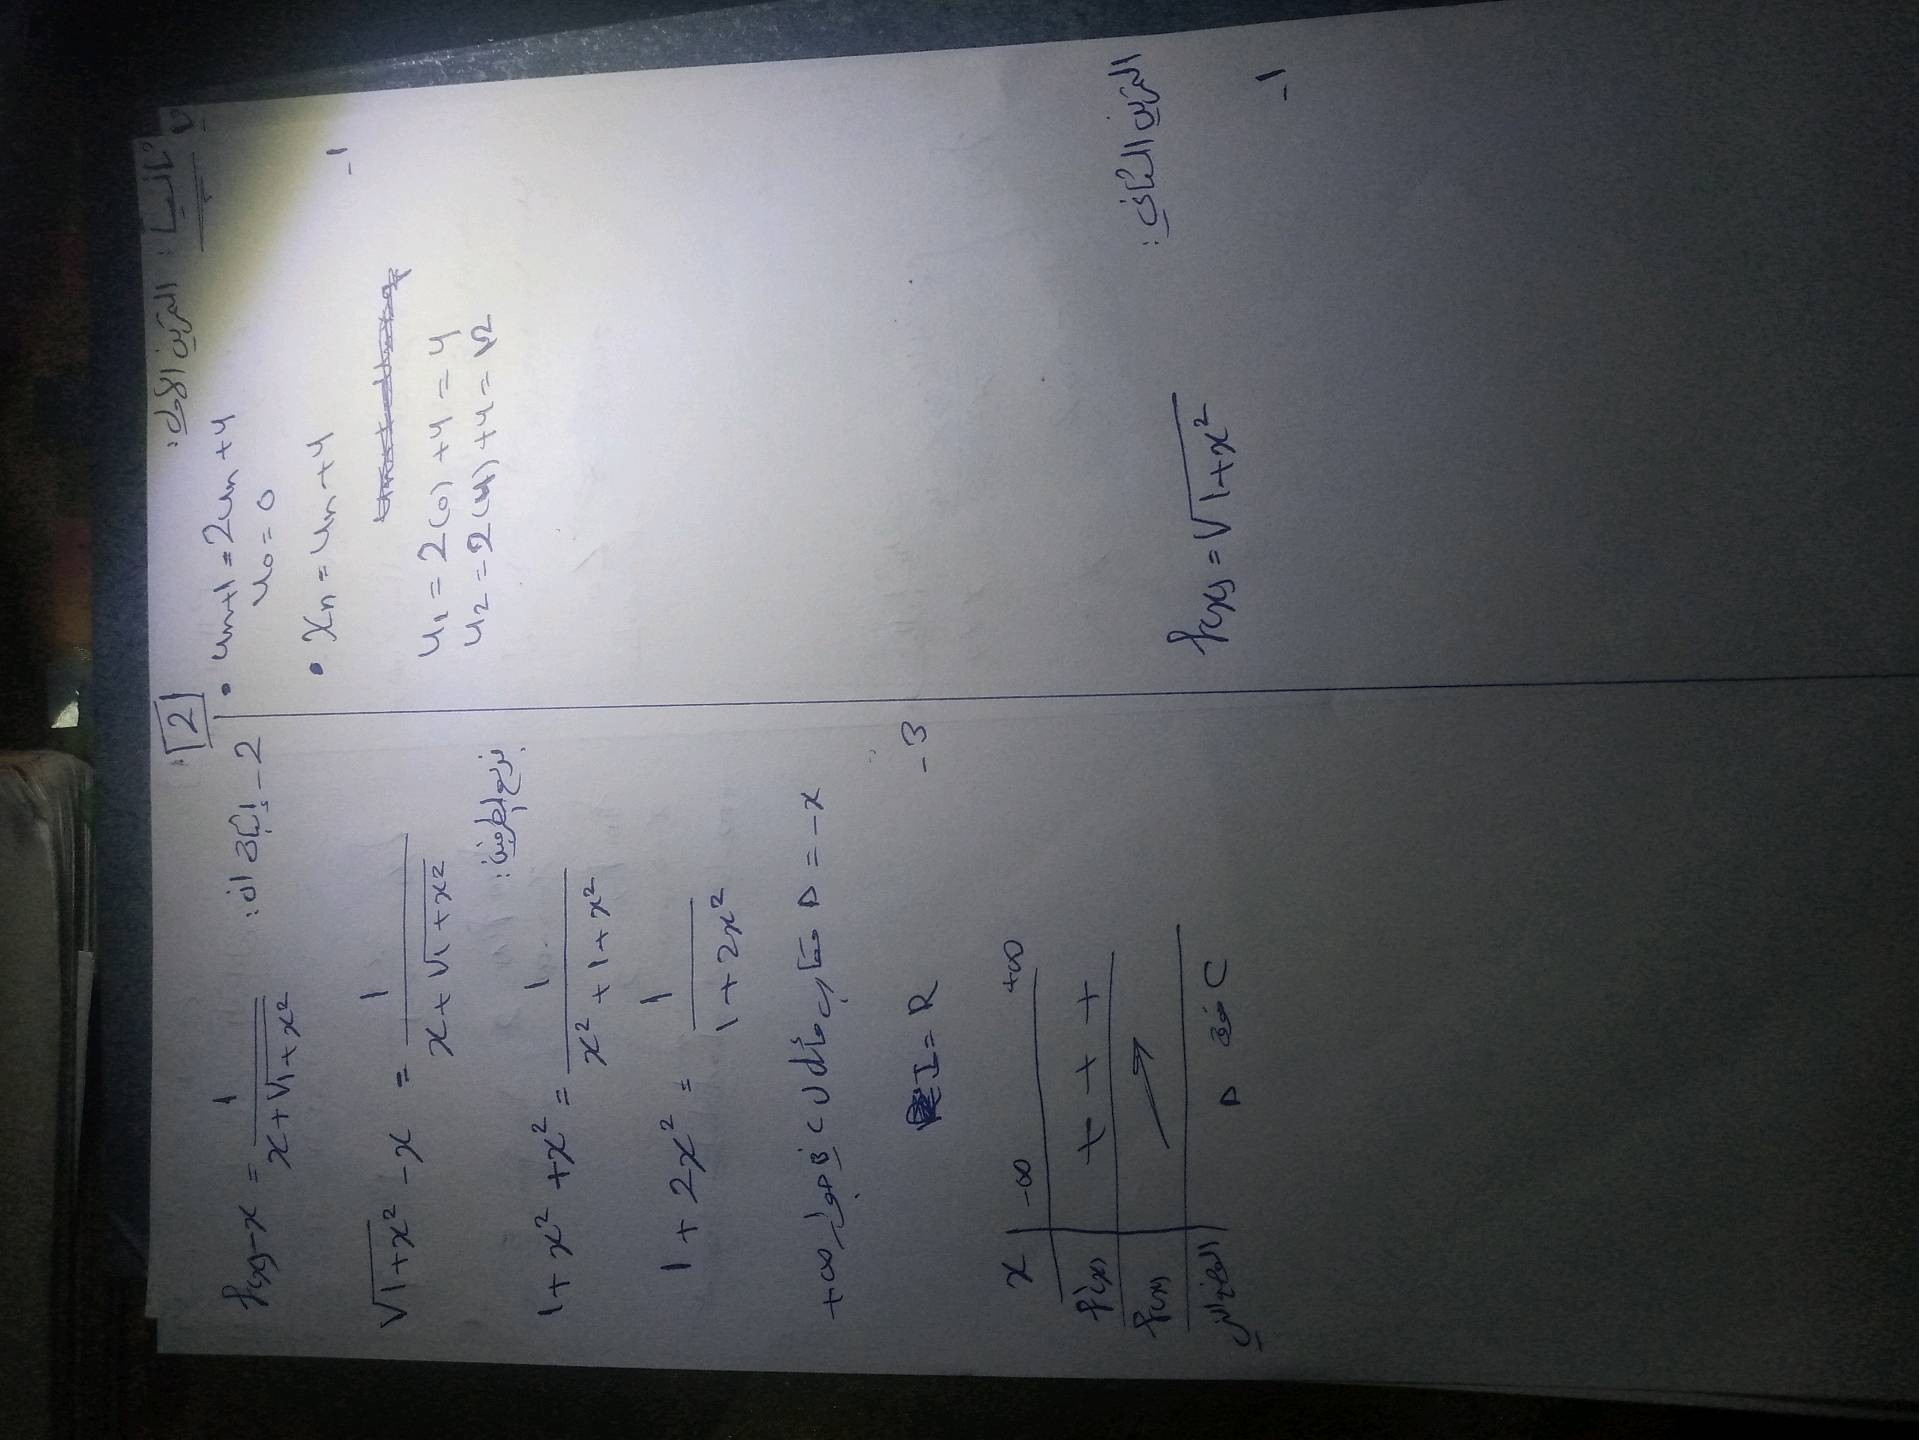 2
ثالثا: التمرين الأول:
• Un+1 = 2Un + 4
U0 = 0
• Xn = Un + 4
1-
U1 = 2(0) + 4 = 4
U2 = 2(4) + 4 = 12
التمرين الثاني:
f(x) = √1+x²
1-
2- إثبات أن:
f(x)-x = 1/(x+√1+x²)
√1+x² - x = 1/(x+√1+x²)
نربع الطرفين:
1+x²+x² = 1/(x²+1+x²)
1+2x² = 1/(1+2x²)
D = -x مقارب مائل لـ C بجوار +∞
3-
I = R
x -∞ +∞
f'(x) + + +
f(x)
C فوق D